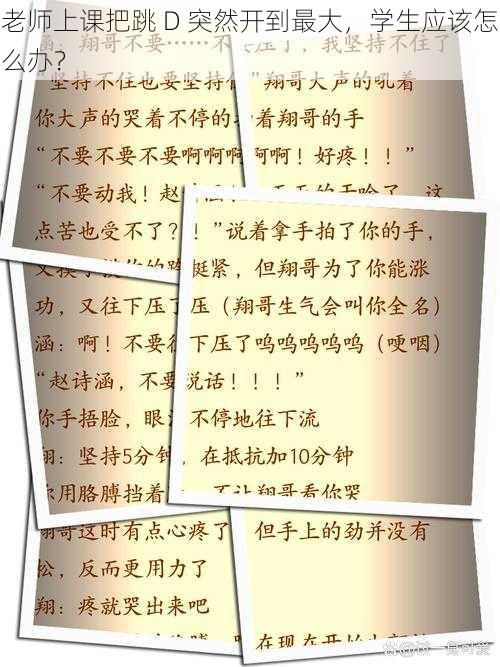 老师上课把跳 D 突然开到最大，学生应该怎
么办？
翔哥不要……不压了，我坚持不住了
"坚持不住也要坚持住"翔哥大声的吼着
你大声的哭着不停的 着翔哥的手
"不要不要不要啊啊啊啊啊！好疼！！"
"不要动我！赵
点苦也受不了？！！"说着拿手拍了你的手，
挺紧，但翔哥为了你能涨
功，又往下压了压（翔哥生气会叫你全名）
涵：啊！不要往下压了呜呜呜呜呜（哽咽）
"赵诗涵，不要说话！！！"
你手捂脸，眼泪不停地往下流
翔：坚持5分钟，在抵抗加10分钟
你用胳膊挡着 不让翔哥看你哭
翔哥这时有点心疼了，但手上的劲并没有
松，反而更用力了
翔：疼就哭出来吧